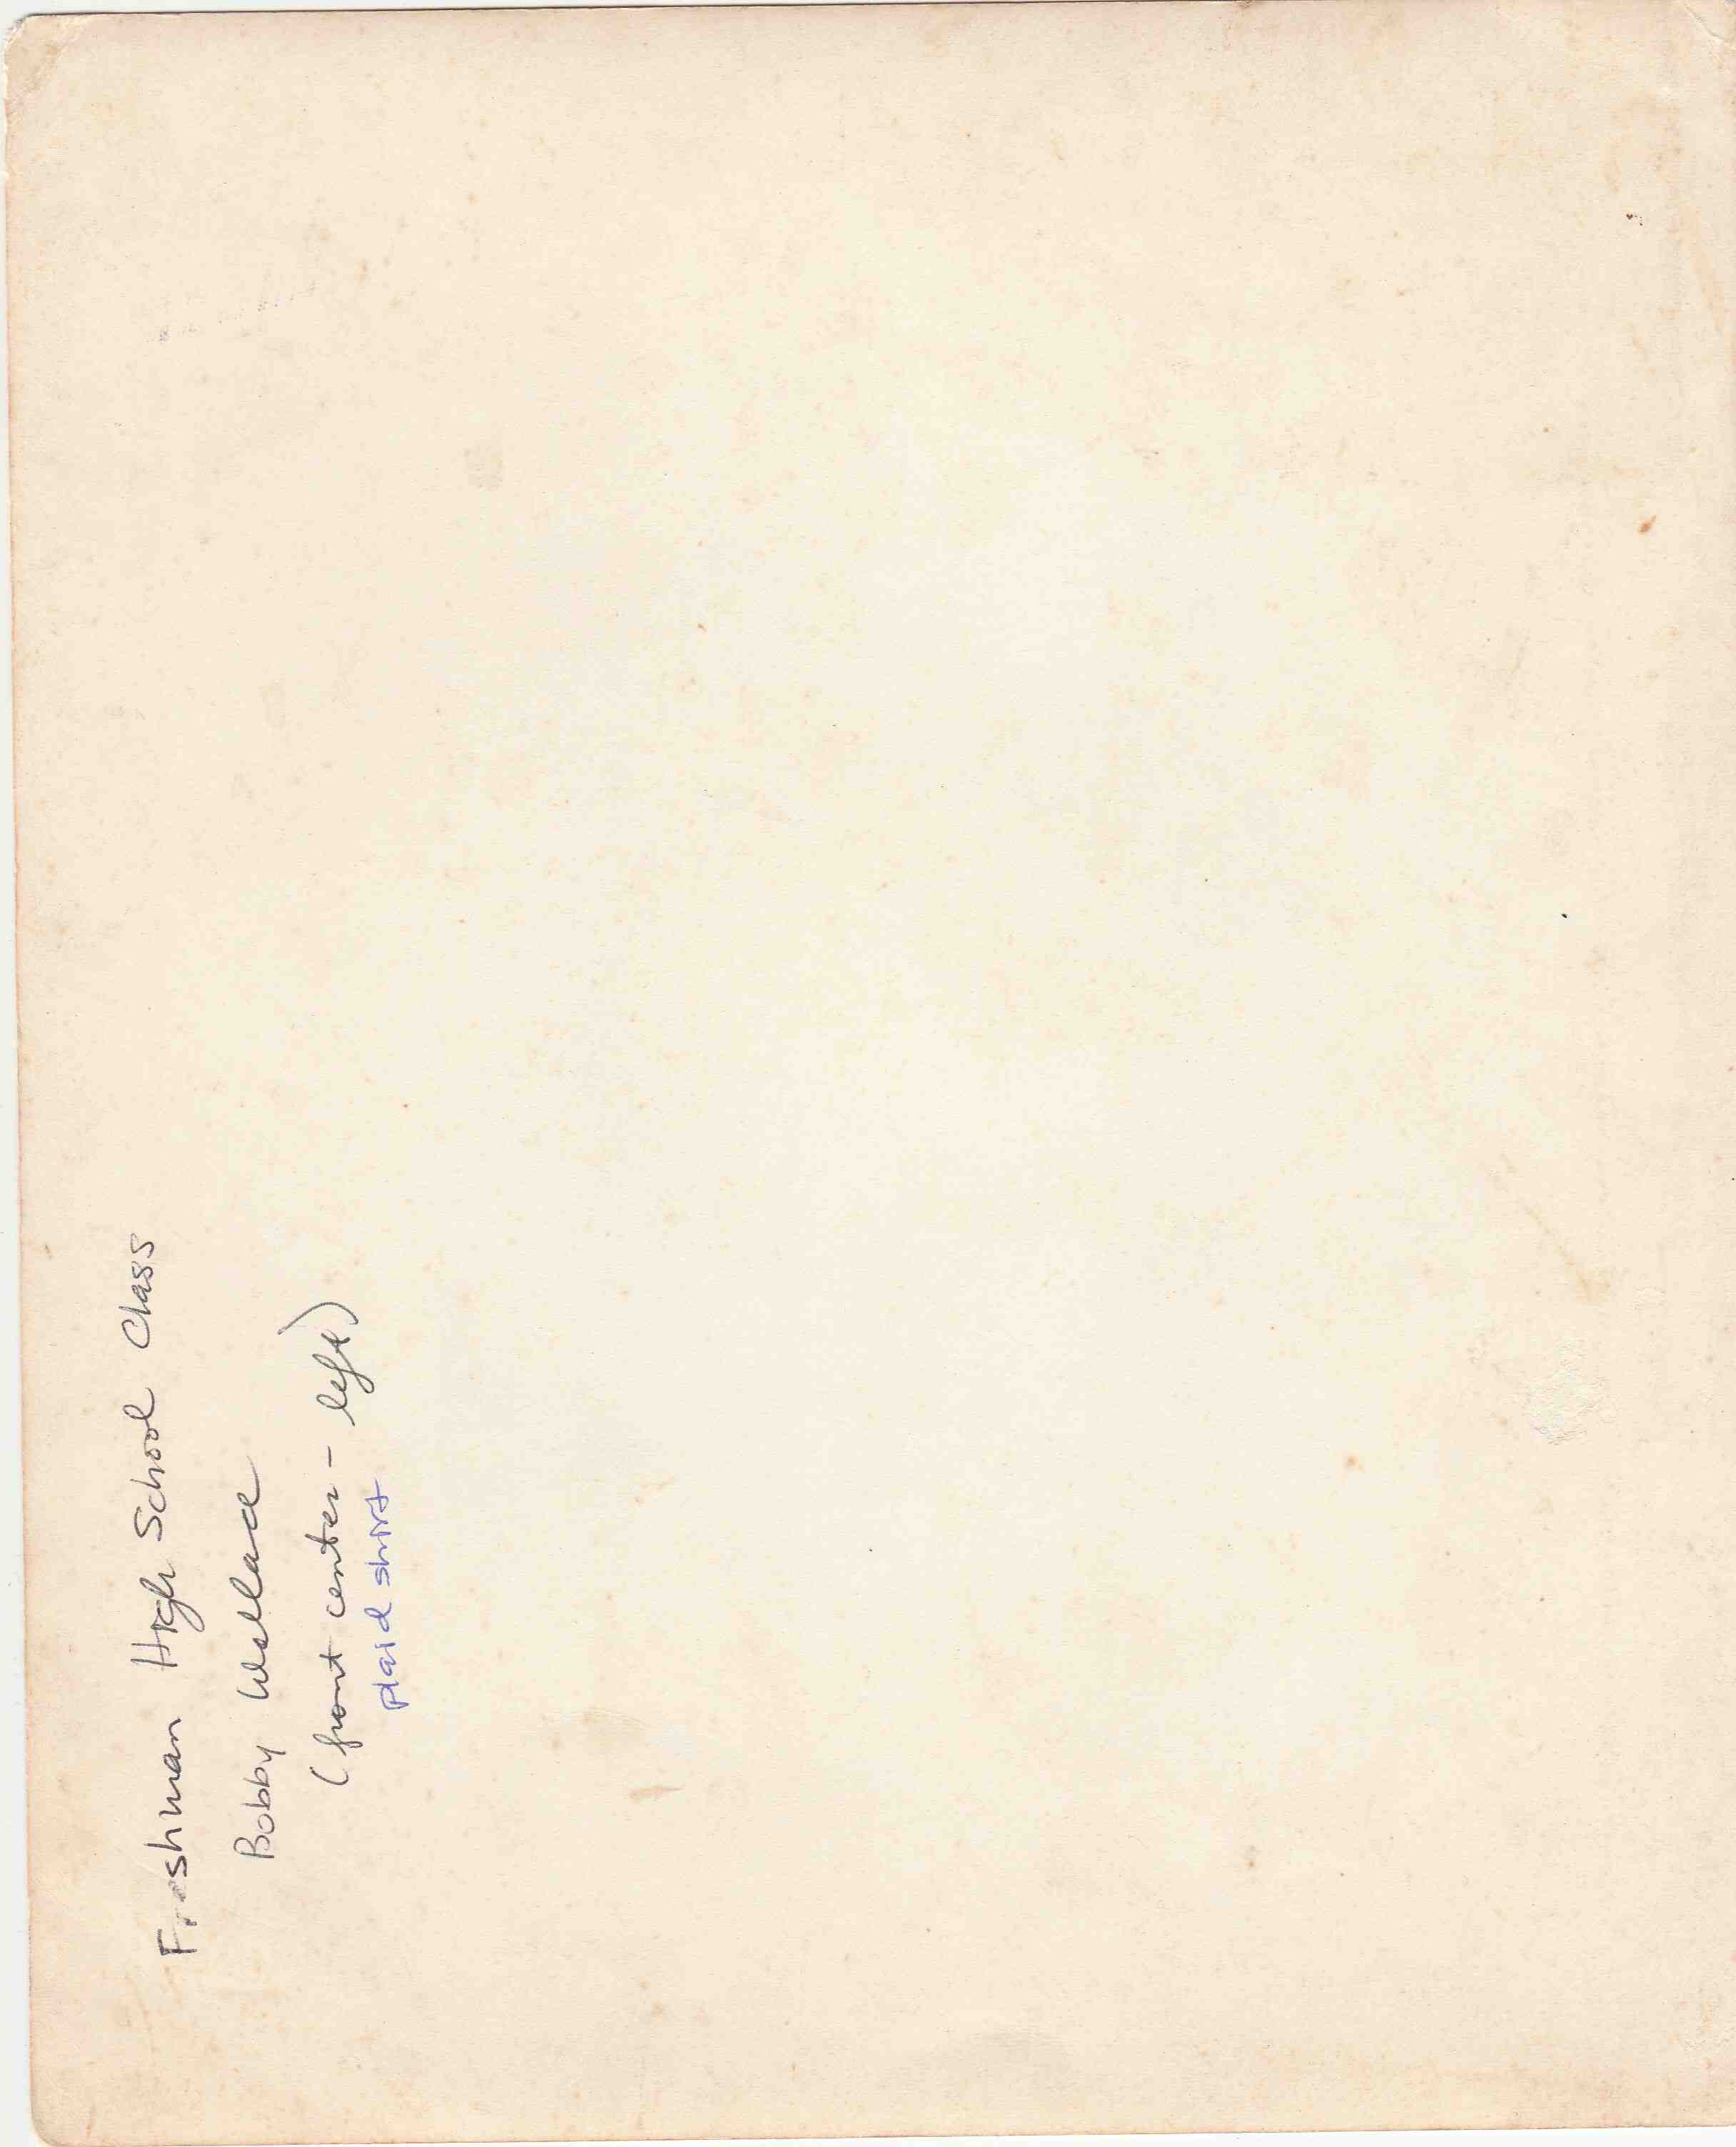 Freshman High School Class
Bobby Wallace
(front center - left)
plaid shirt